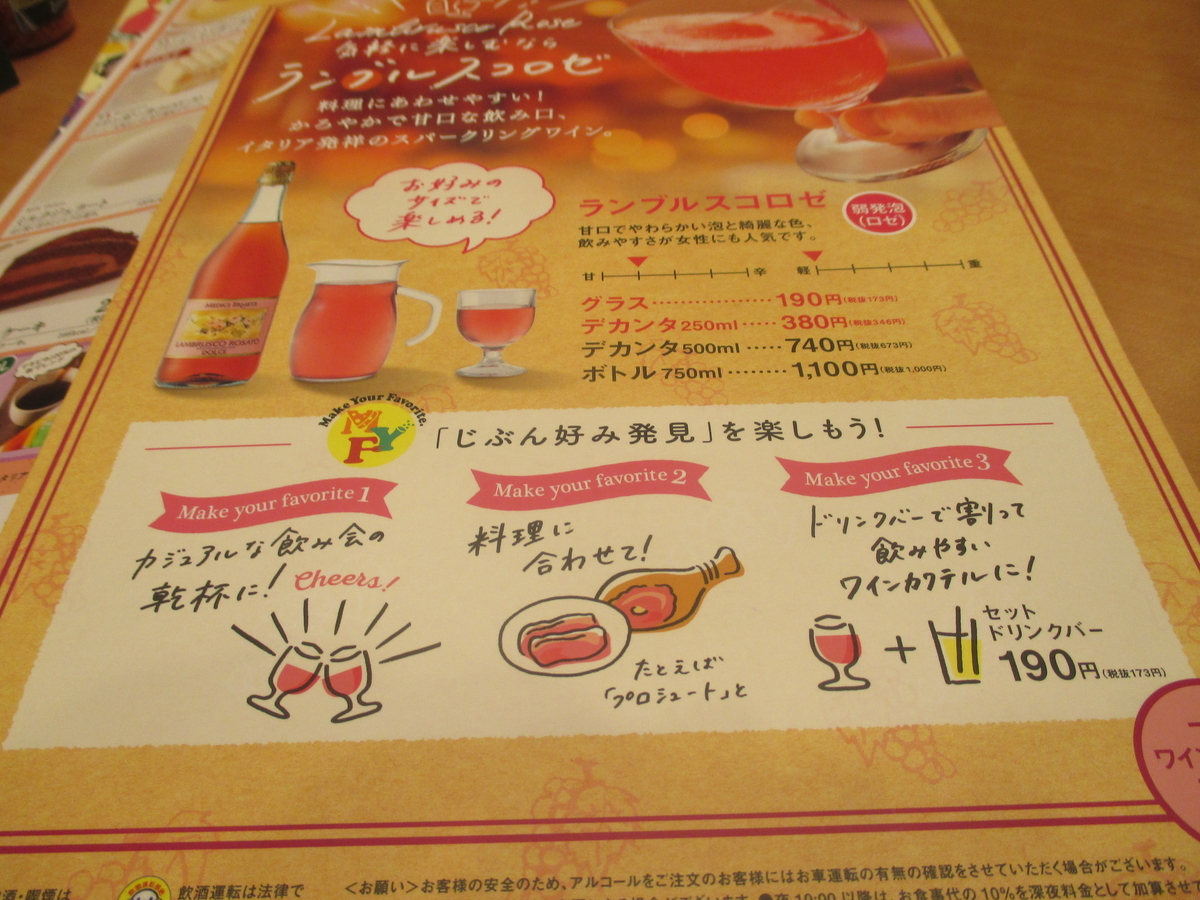 Lambrusco Rose
気軽に楽しむなら
ランブルスコロゼ
料理にあわせやすい!
かろやかで甘口な飲み口、
イタリア発祥のスパークリングワイン。
お好みの
サイズで
楽しめる!
ランブルスコロゼ
弱発泡
(ロゼ)
甘口でやわらかい泡と綺麗な色、
飲みやすさが女性にも人気です。
甘 辛 軽 重
グラス・・・・・・・・・・・・・・・190円(税抜173円)
デカンタ250ml・・・・・380円(税抜346円)
デカンタ500ml・・・・・740円(税抜673円)
ボトル750ml・・・・・・・・1,100円(税抜1,000円)
LAMBRUSCO ROSATO
DOLCE
Make Your Favorite.
MFY
「じぶん好み発見」を楽しもう!
Make your favorite 1
カジュアルな飲み会の
乾杯に! Cheers!
Make your favorite 2
料理に
合わせて!
たとえば
「プロシュート」と
Make your favorite 3
ドリンクバーで割って
飲みやすい
ワインカクテルに!
+
セット
ドリンクバー
190円(税抜173円)
ワイン
ケーキ
酒・喫煙は
飲酒運転は法律で
<お願い>お客様の安全のため、アルコールをご注文のお客様にはお車運転の有無の確認をさせていただく場合がございます。
●夜10:00以降は、お食事代の10%を深夜料金として加算させて